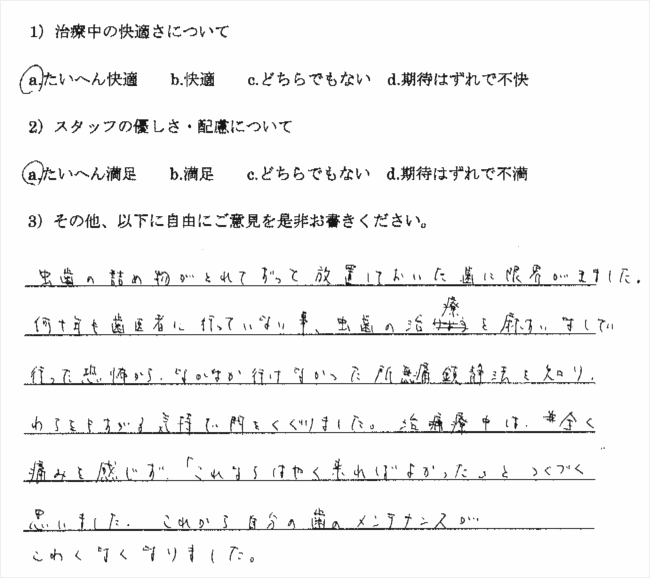 1）治療中の快適さについて
a.たいへん快適　b.快適　c.どちらでもない　d.期待はずれで不快
2）スタッフの優しさ・配慮について
a.たいへん満足　b.満足　c.どちらでもない　d.期待はずれで不満
3）その他、以下に自由にご意見を是非お書きください。
虫歯の詰め物がとれてずって放置しておいた歯に限界がきました。
何十年も歯医者に行っていない事、虫歯の治療を麻すいなしで
行った恐怖から、なかなか行けなかった所無痛鎮静法を知り、
わらをもすがる気持で門をくぐりました。治療中は、全く
痛みを感じず、「これならはやく来ればよかった」とつくづく
思いました。これから自分の歯のメンテナンスが
こわくなくなりました。